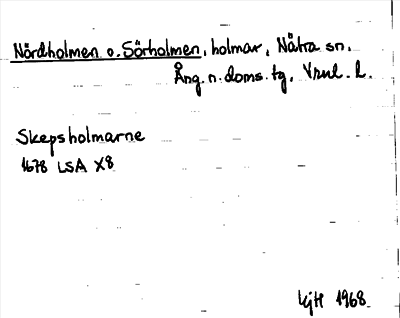 Nördholmen o. Sörholmen, holmar, Nätra sn.
Ång. n. doms. tg, Vnrl. l.
Skepsholmarne
1678 LSA X8
LjH 1968